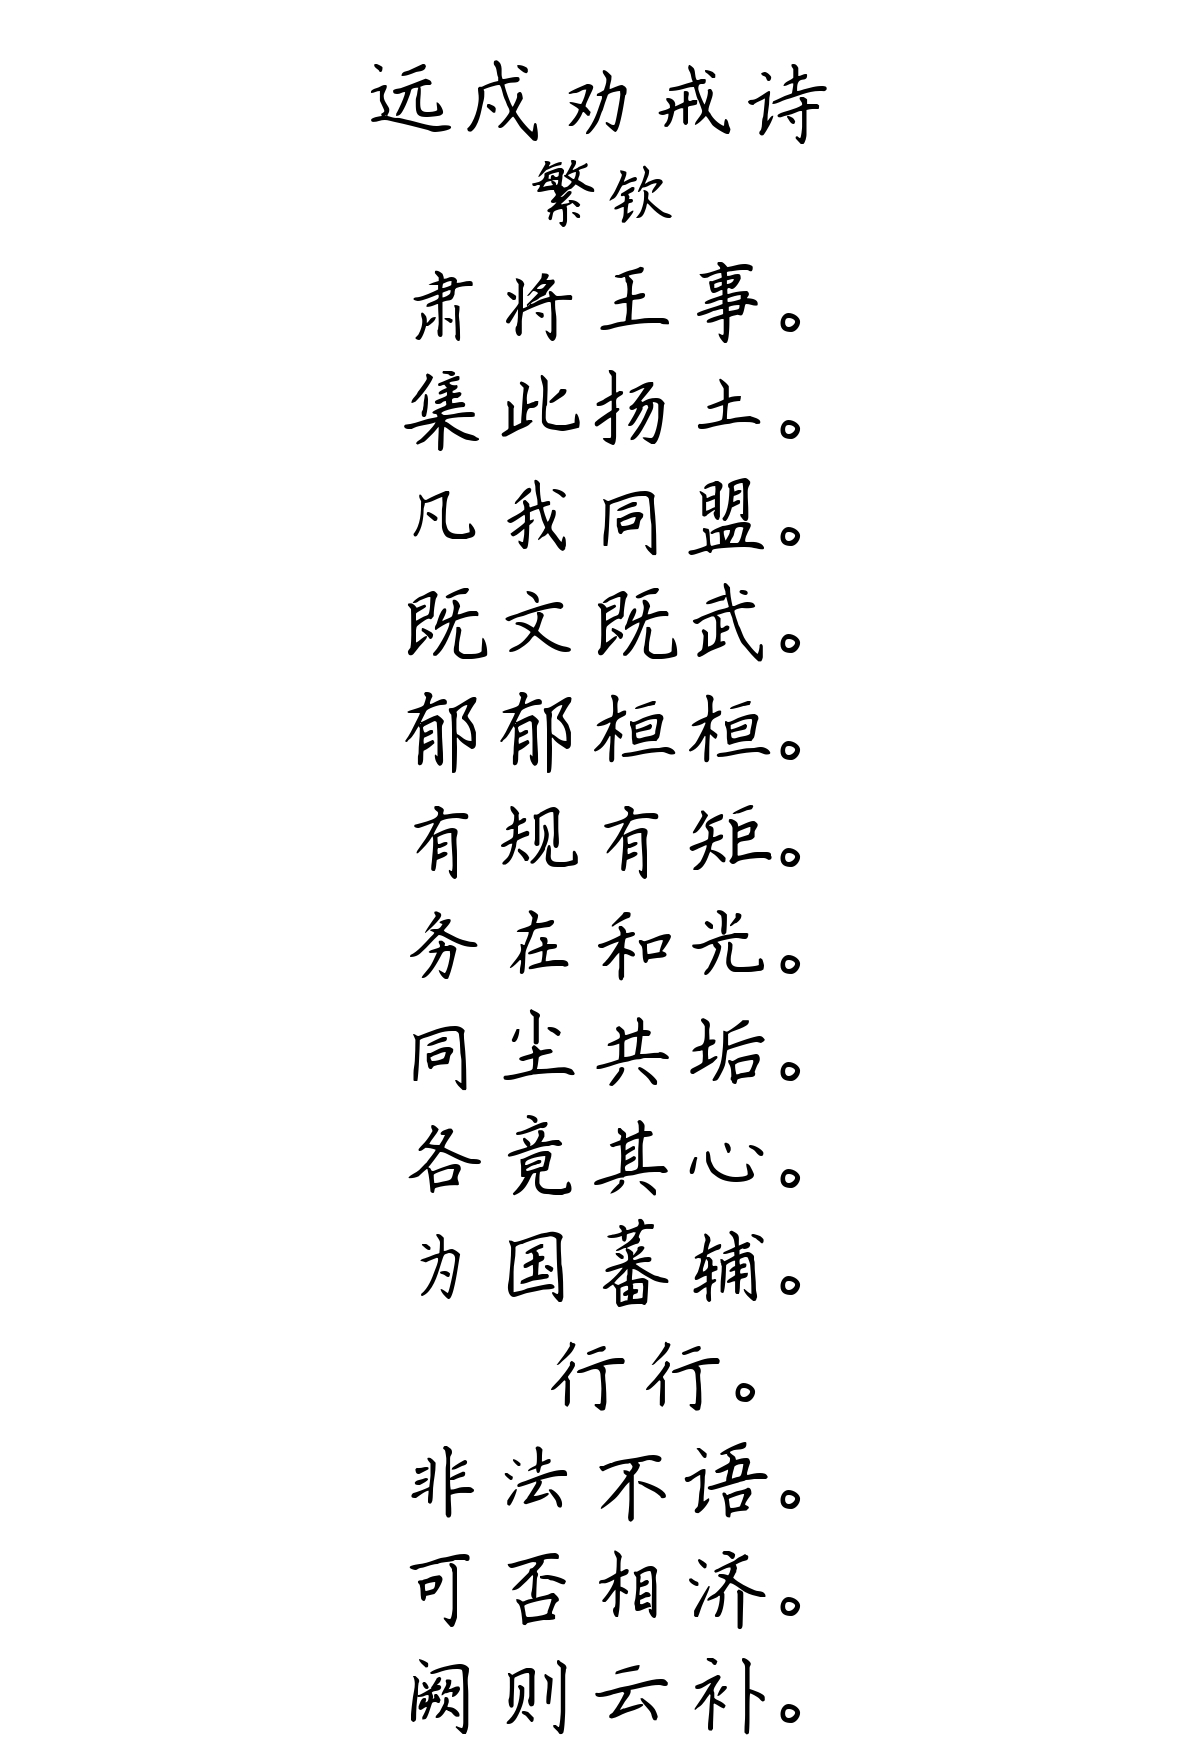 远戍劝戒诗
繁钦
肃将王事。
集此扬土。
凡我同盟。
既文既武。
郁郁桓桓。
有规有矩。
务在和光。
同尘共垢。
各竟其心。
为国蕃辅。
行行。
非法不语。
可否相济。
阙则云补。